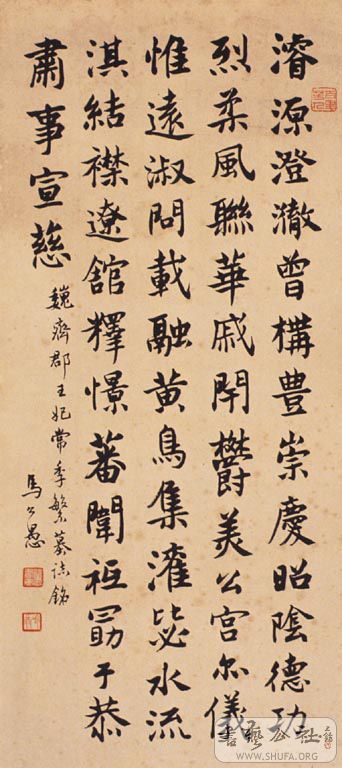 濬源澄澈曾構豊崇慶昭陰德功
烈柔風聯華戚閈欝美公宮尒儀
惟遠淑問載融黄鳥集灌毖水流
淇結襟遼舘釋憬蕃闈祗勗于恭
肅事宣慈
魏齊郡王妃常季繁墓誌銘
馬公愚
WWW.SHUFA.ORG